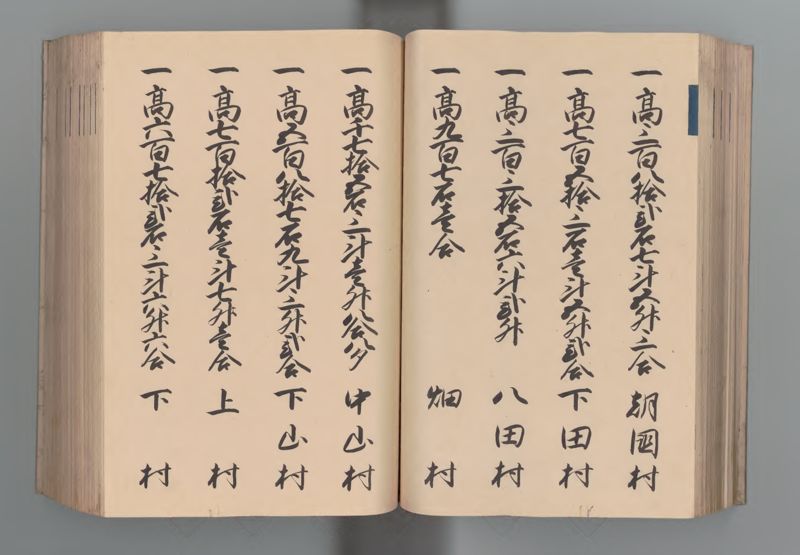 一高三百八拾弐石七斗五升三合 朝国村
一高七百五拾三石壱斗五升弐合 下田村
一高三百三拾五石六斗弐升 八田村
一高九百七石壱合 畑村
一高千七拾五石三斗壱升八合八夕 中山村
一高五百八拾七石九斗三升弐合 下山村
一高七百拾弐石壱斗七升壱合 上村
一高六百七拾弐石三斗六升六合 下村